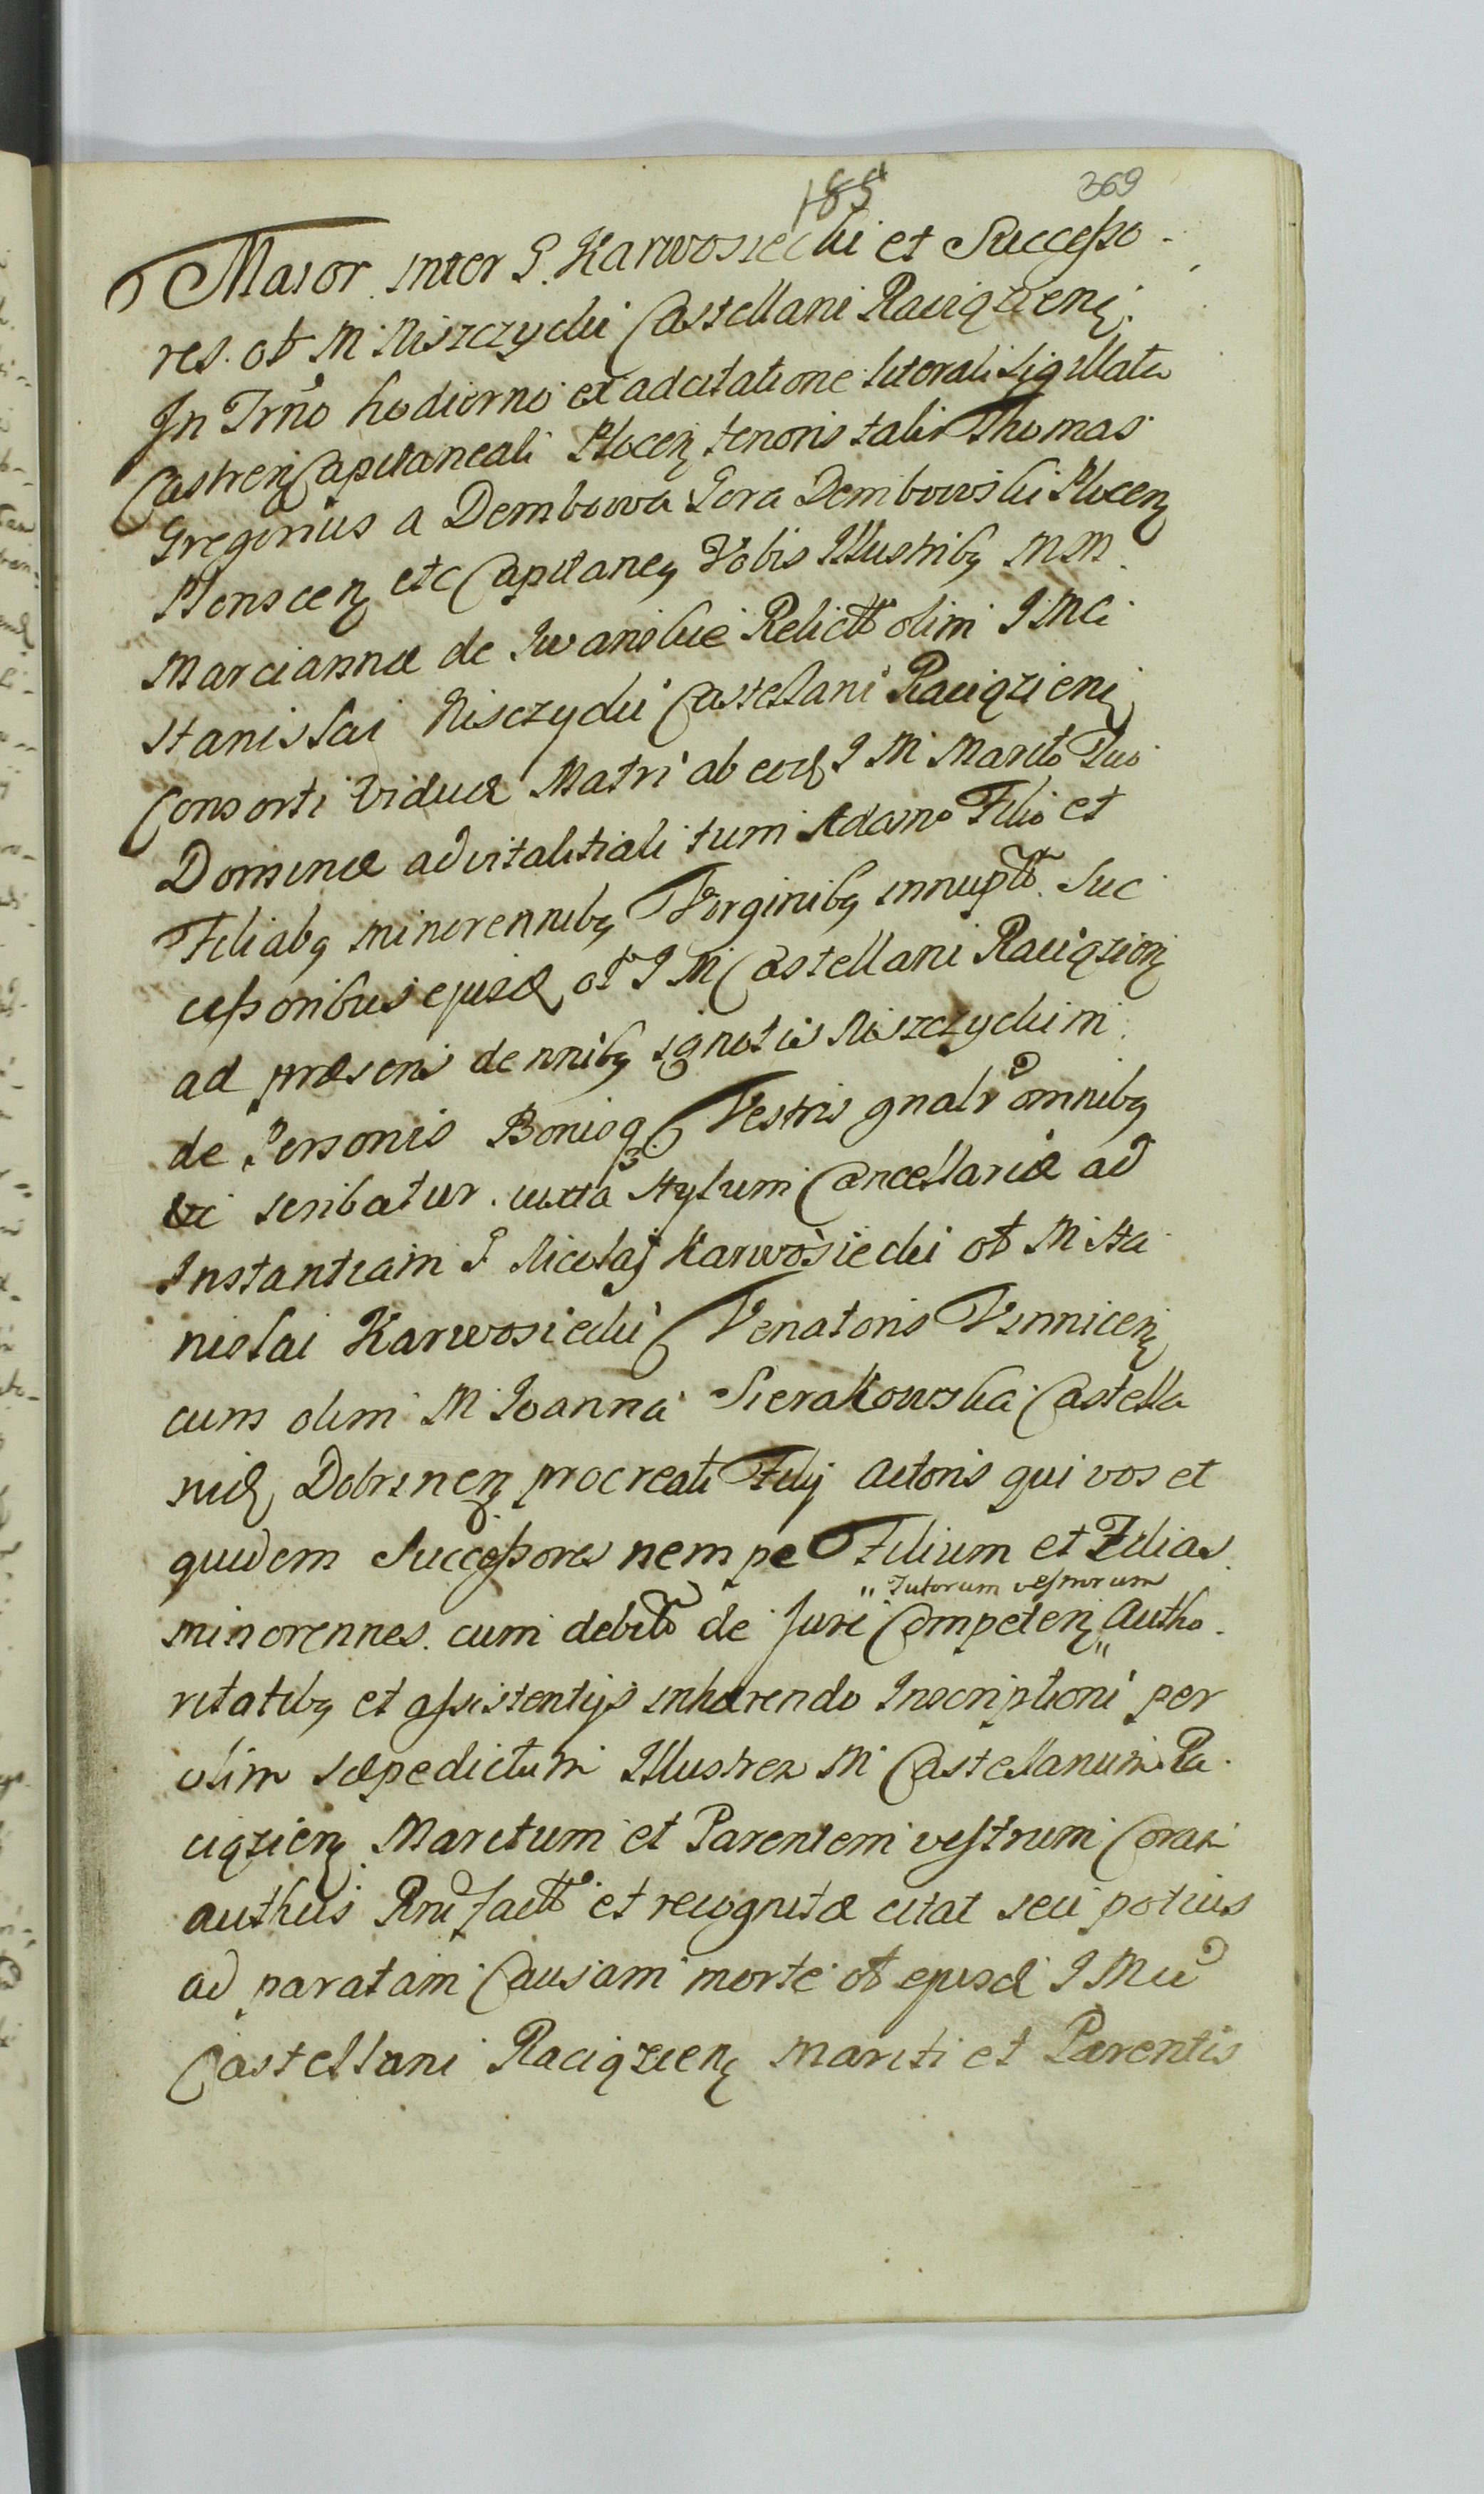 185 369
Maior inter G. Karwosiecki et Successo
res. ol. M Niszczycki Castellani Raciązieñ.
In Trno hodierno ex adcitatione literali sigillata
Castren Capitaneali Plocen tenoris talis Thomas
Gregorius a Dembowa Gora Dembowski Plocen
Plonscen etc Capitaneq Vobis Illustribq MM
Marciannæ de Iwanskie Relictæ olim I Mci
Stanislai Nisczycki Castellani Raciązieni
Consorti Viduæ Matri ab eod I M Marito Suo
Dominæ advitalitiali tum Adamo Filio et
Filiabq minorennibq Virginibq innuptis Suc
cessoribus ejusd ol I M Castellani Raciązien
ad præsens de nnibq ignotis Niszczyckim
de Personis Bonisq Vestris gnalr omnibq
uti scribatur. iuxta Stylum Cancellariæ ad
Instantiam G Nicolaj Karwosiecki ol M Sta
nislai Karwosiecki Venatoris Vinnicen
cum olim M Joanna Sierakowska Castella
nid Dobrinen procreati Filij Actoris qui vos et
quidem Successores nempe Filium et Filias
minorennes. cum debitis de Jure Competen „ Autho
„ Tutorum vestrorum
ritatibq et assistentijs inhærendo Inscriptioni per
olim sæpedictum Illustrem M Castellanum Ra
ciązien Maritum et Parentem vestrum Coram
authcis Prni factæ et recognitæ citat seu potius
ad paratam Causam morte ol ejusd I Mci
Castellani Raciązien mariti et Parentis